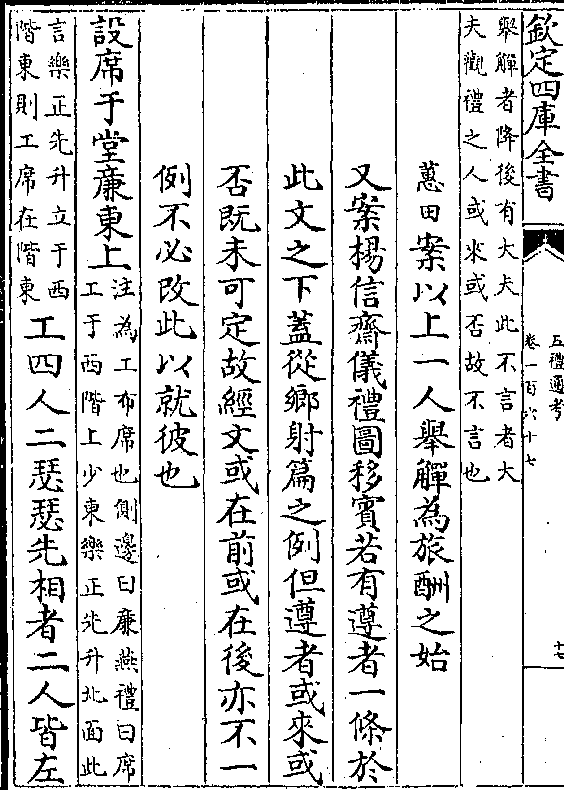 欽定四庫全書
五禮通考
卷一百六十七
十七
舉觶者降後有大夫此不言者大
夫觀禮之人或來或否故不言也
蕙田案以上一人舉觶為旅酬之始
又案楊信齋儀禮圖移賔若有遵者一條於
此文之下蓋從鄉射篇之例但遵者或來或
否既未可定故經文或在前或在後亦不一
例不必改此以就彼也
設席于堂亷東上
注為工布席也側邊曰亷燕禮曰席
工于西階上少東樂正先升北面此
言樂正先升立于西
階東則工席在階東
工四人二瑟瑟先相者二人皆左